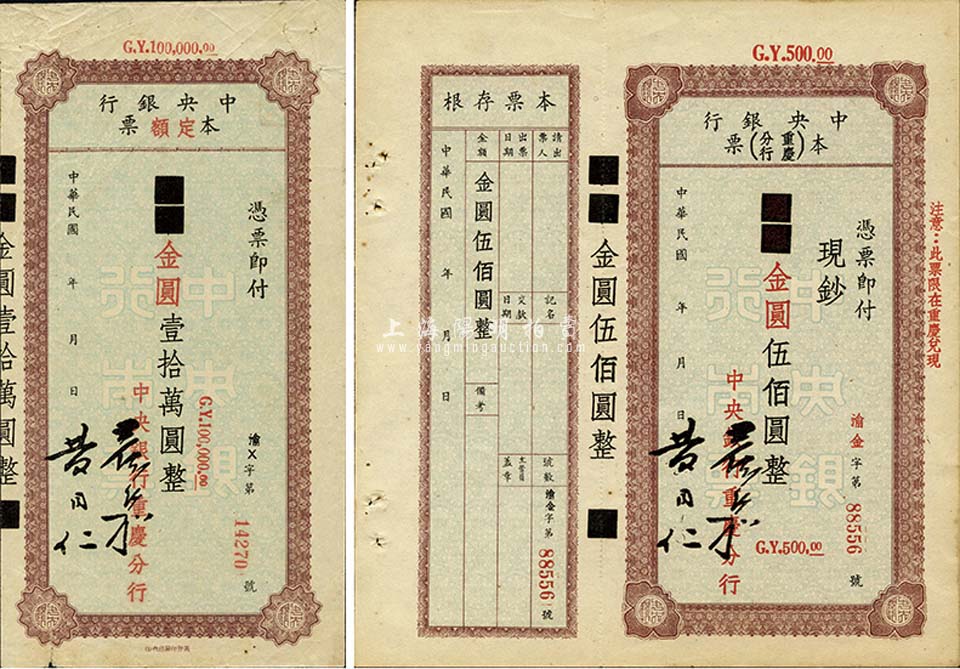 G.Y.100,000.00
中央銀行
本定額票
憑票即付
金圓壹拾萬圓整
G.Y.100,000.00
渝X字第14270號
中央銀行重慶分行
中華民國 年 月 日
金圓壹拾萬圓整
G.Y.500.00
中央銀行
本(重慶分行)票
注意：此票限在重慶兌現
憑票即付
現鈔
金圓伍佰圓整
渝金字第88556號
中央銀行重慶分行
G.Y.500.00
中華民國 年 月 日
金圓伍佰圓整
本票存根
請出票人
出票日期
金額
金圓伍佰圓整
中華民國 年 月 日
記名
交款日期
備考
號數
渝金字第88556號
主管員蓋章
上海陽明拍賣
www.yangmingauction.com